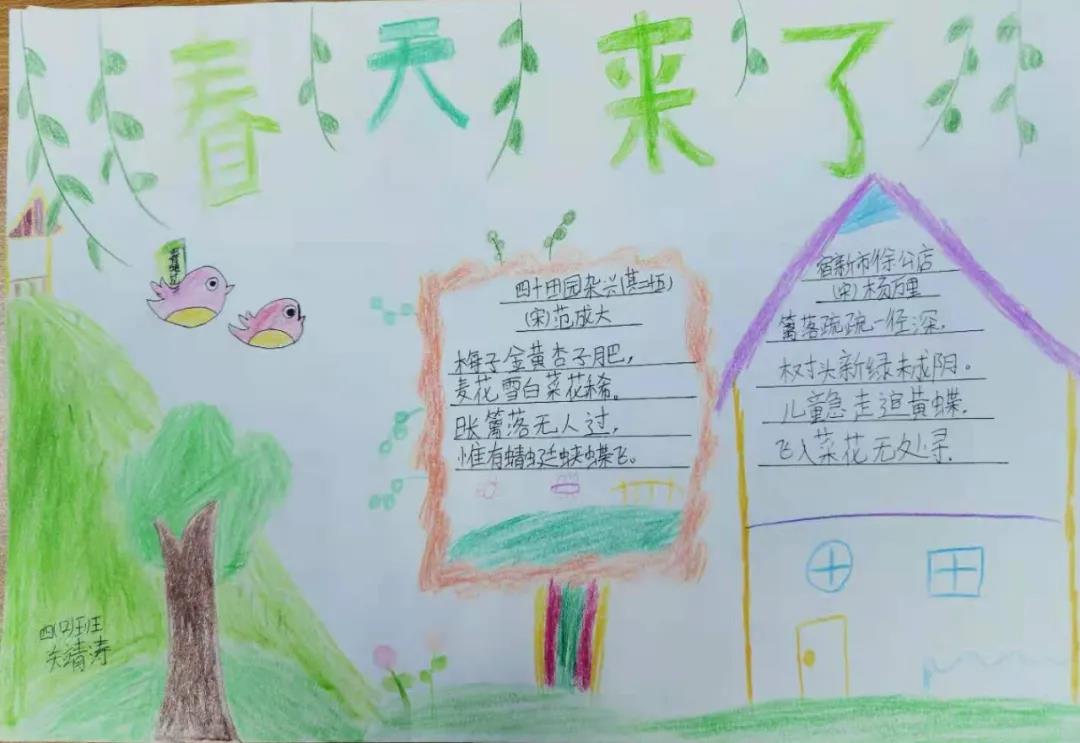 春天来了
四十田园杂兴(其二十五)
(宋)范成大
梅子金黄杏子肥,
麦花雪白菜花稀。
日长篱落无人过,
惟有蜻蜓蛱蝶飞。
宿新市徐公店
(宋)杨万里
篱落疏疏一径深,
树头新绿未成阴。
儿童急走追黄蝶,
飞入菜花无处寻.
四(2)班
靖涛